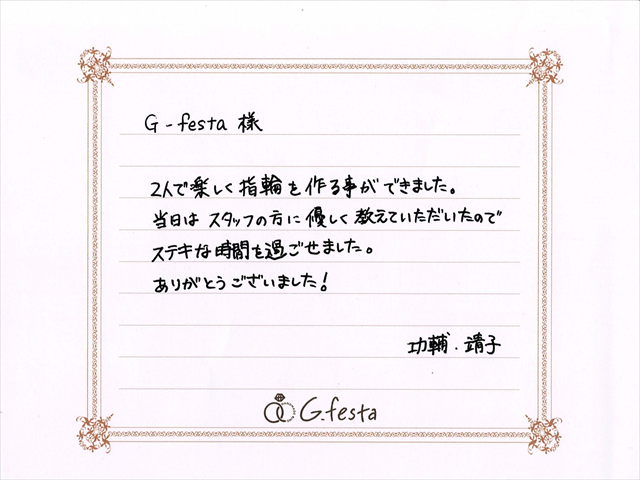 G-festa 様
2人で楽しく指輪を作る事ができました。
当日は スタッフの方に 優しく教えていただいたので
ステキな時間を過ごせました。
ありがとうございました!
功輔.靖子
G.festa